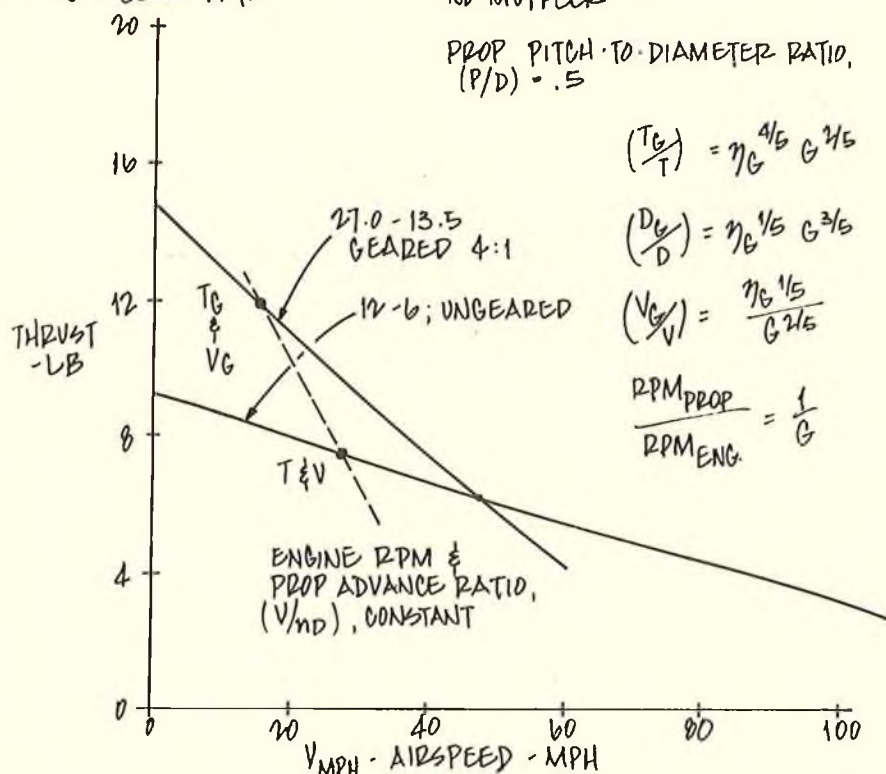 NO MUFFLER
20
PROP PITCH-TO-DIAMETER RATIO,
(P/D) = .5
(TG/T) = ηG^4/5 G^2/5
16
27.0-13.5
GEARED 4:1
(DG/D) = ηG^1/5 G^3/5
TG
&
VG
12
12-6; UNGEARED
(VG/V) = ηG^1/5 / G^2/5
THRUST
-LB
RPM PROP / RPM ENG. = 1/G
8
T & V
ENGINE RPM &
PROP ADVANCE RATIO,
(V/nD), CONSTANT
4
0
0 20 40 60 80 100
VMPH - AIRSPEED - MPH